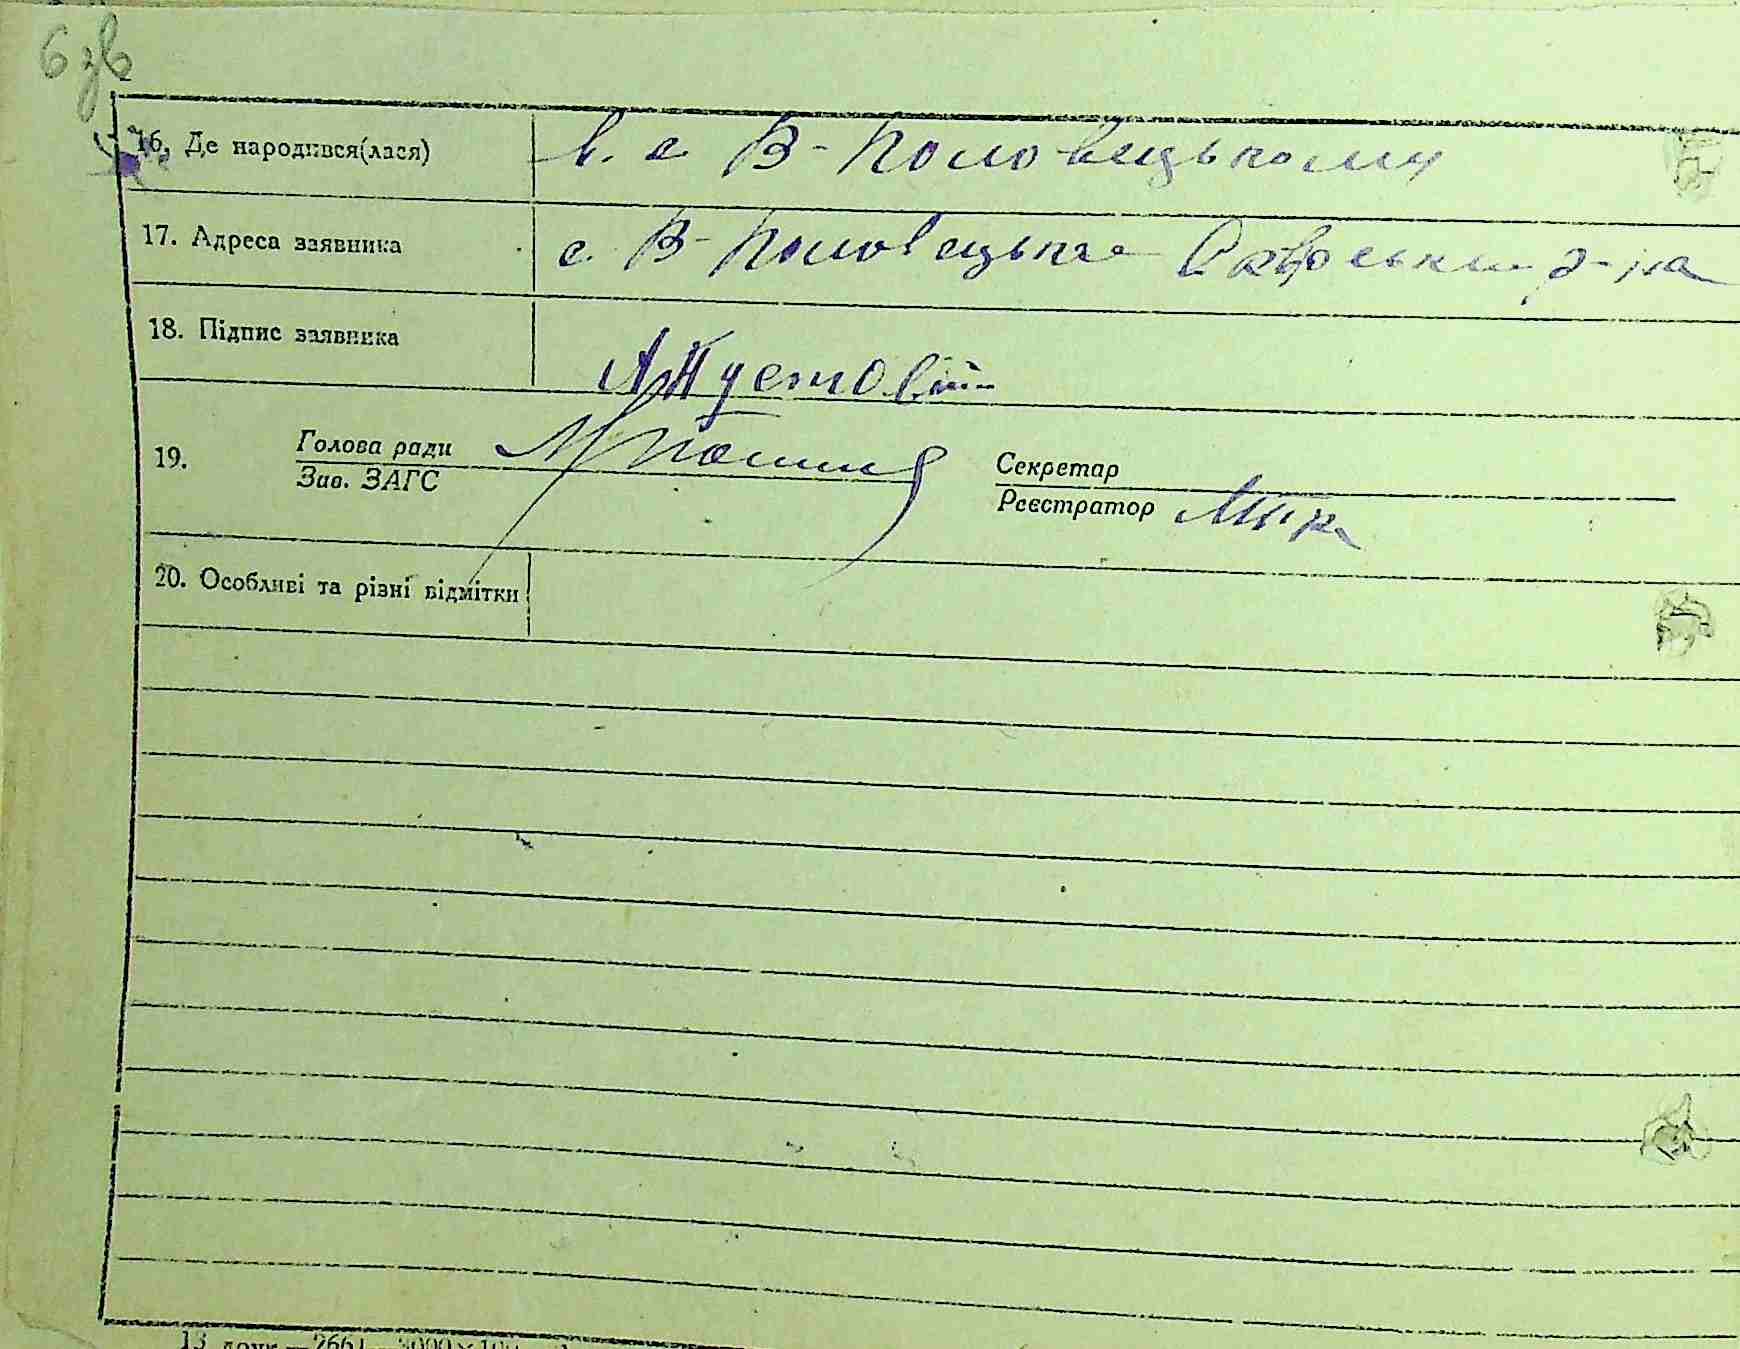 6 зв
16. Де народився(лася) в. с. В-Половецькому
17. Адреса заявника с. В-Половецьке Сквирськ р-на
18. Підпис заявника А Пустовіт
19. Голова ради Секретар
Зав. ЗАГС Реєстратор
20. Особливі та різні відмітки
13 друк.—2661